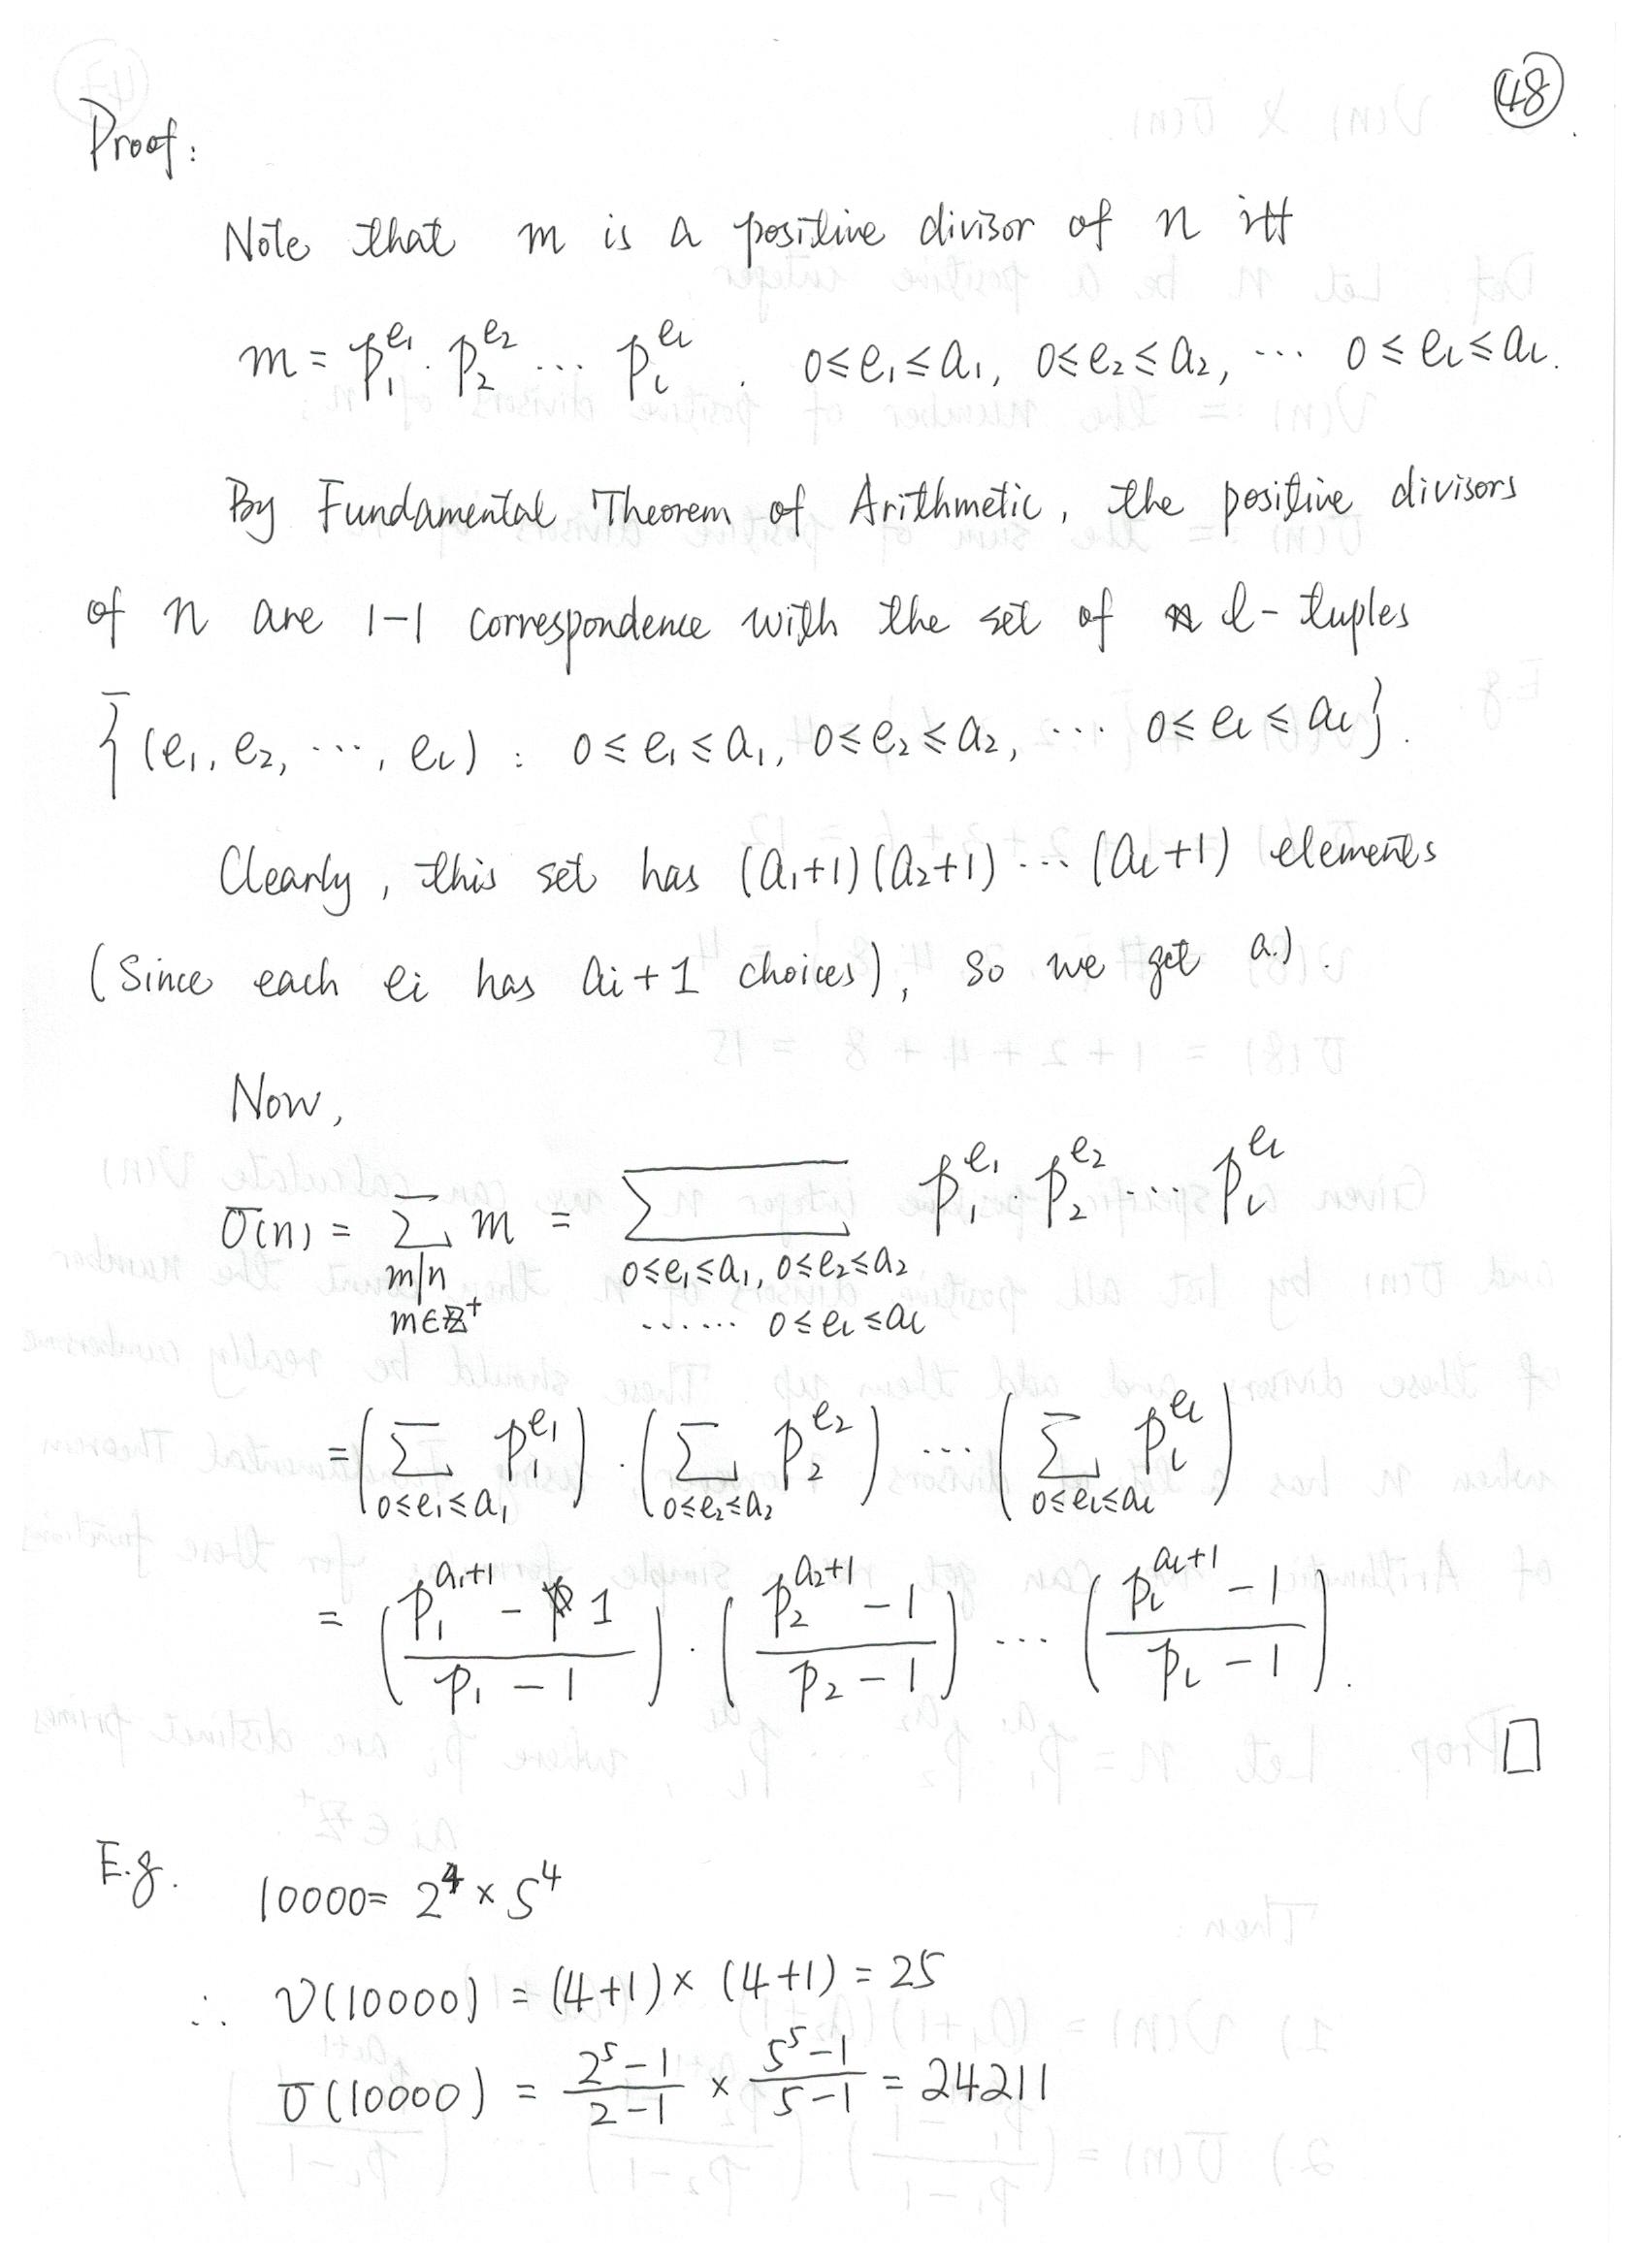 48
Proof:
Note that m is a positive divisor of n iff
m = p₁^e₁ · p₂^e₂ ... p_l^e_l . 0≤e₁≤a₁, 0≤e₂≤a₂, ... 0≤e_l≤a_l.
By Fundamental Theorem of Arithmetic, the positive divisors
of n are 1-1 correspondence with the set of l-tuples
{(e₁, e₂, ..., e_l) : 0≤e₁≤a₁, 0≤e₂≤a₂, ... 0≤e_l≤a_l}.
Clearly, this set has (a₁+1)(a₂+1) ... (a_l+1) elements
(Since each e_i has a_i+1 choices), so we get a.).
Now,
σ(n) = ∑_{m|n, m∈ℤ⁺} m = ∑_{0≤e₁≤a₁, 0≤e₂≤a₂ ...... 0≤e_l≤a_l} p₁^e₁ · p₂^e₂ ... p_l^e_l
= (∑_{0≤e₁≤a₁} p₁^e₁) · (∑_{0≤e₂≤a₂} p₂^e₂) ... (∑_{0≤e_l≤a_l} p_l^e_l)
= ((p₁^(a₁+1) - 1)/(p₁ - 1)) · ((p₂^(a₂+1) - 1)/(p₂ - 1)) ... ((p_l^(a_l+1) - 1)/(p_l - 1)).
□
E.g. 10000 = 2⁴ × 5⁴
∴ ν(10000) = (4+1) × (4+1) = 25
σ(10000) = (2⁵-1)/(2-1) × (5⁵-1)/(5-1) = 24211